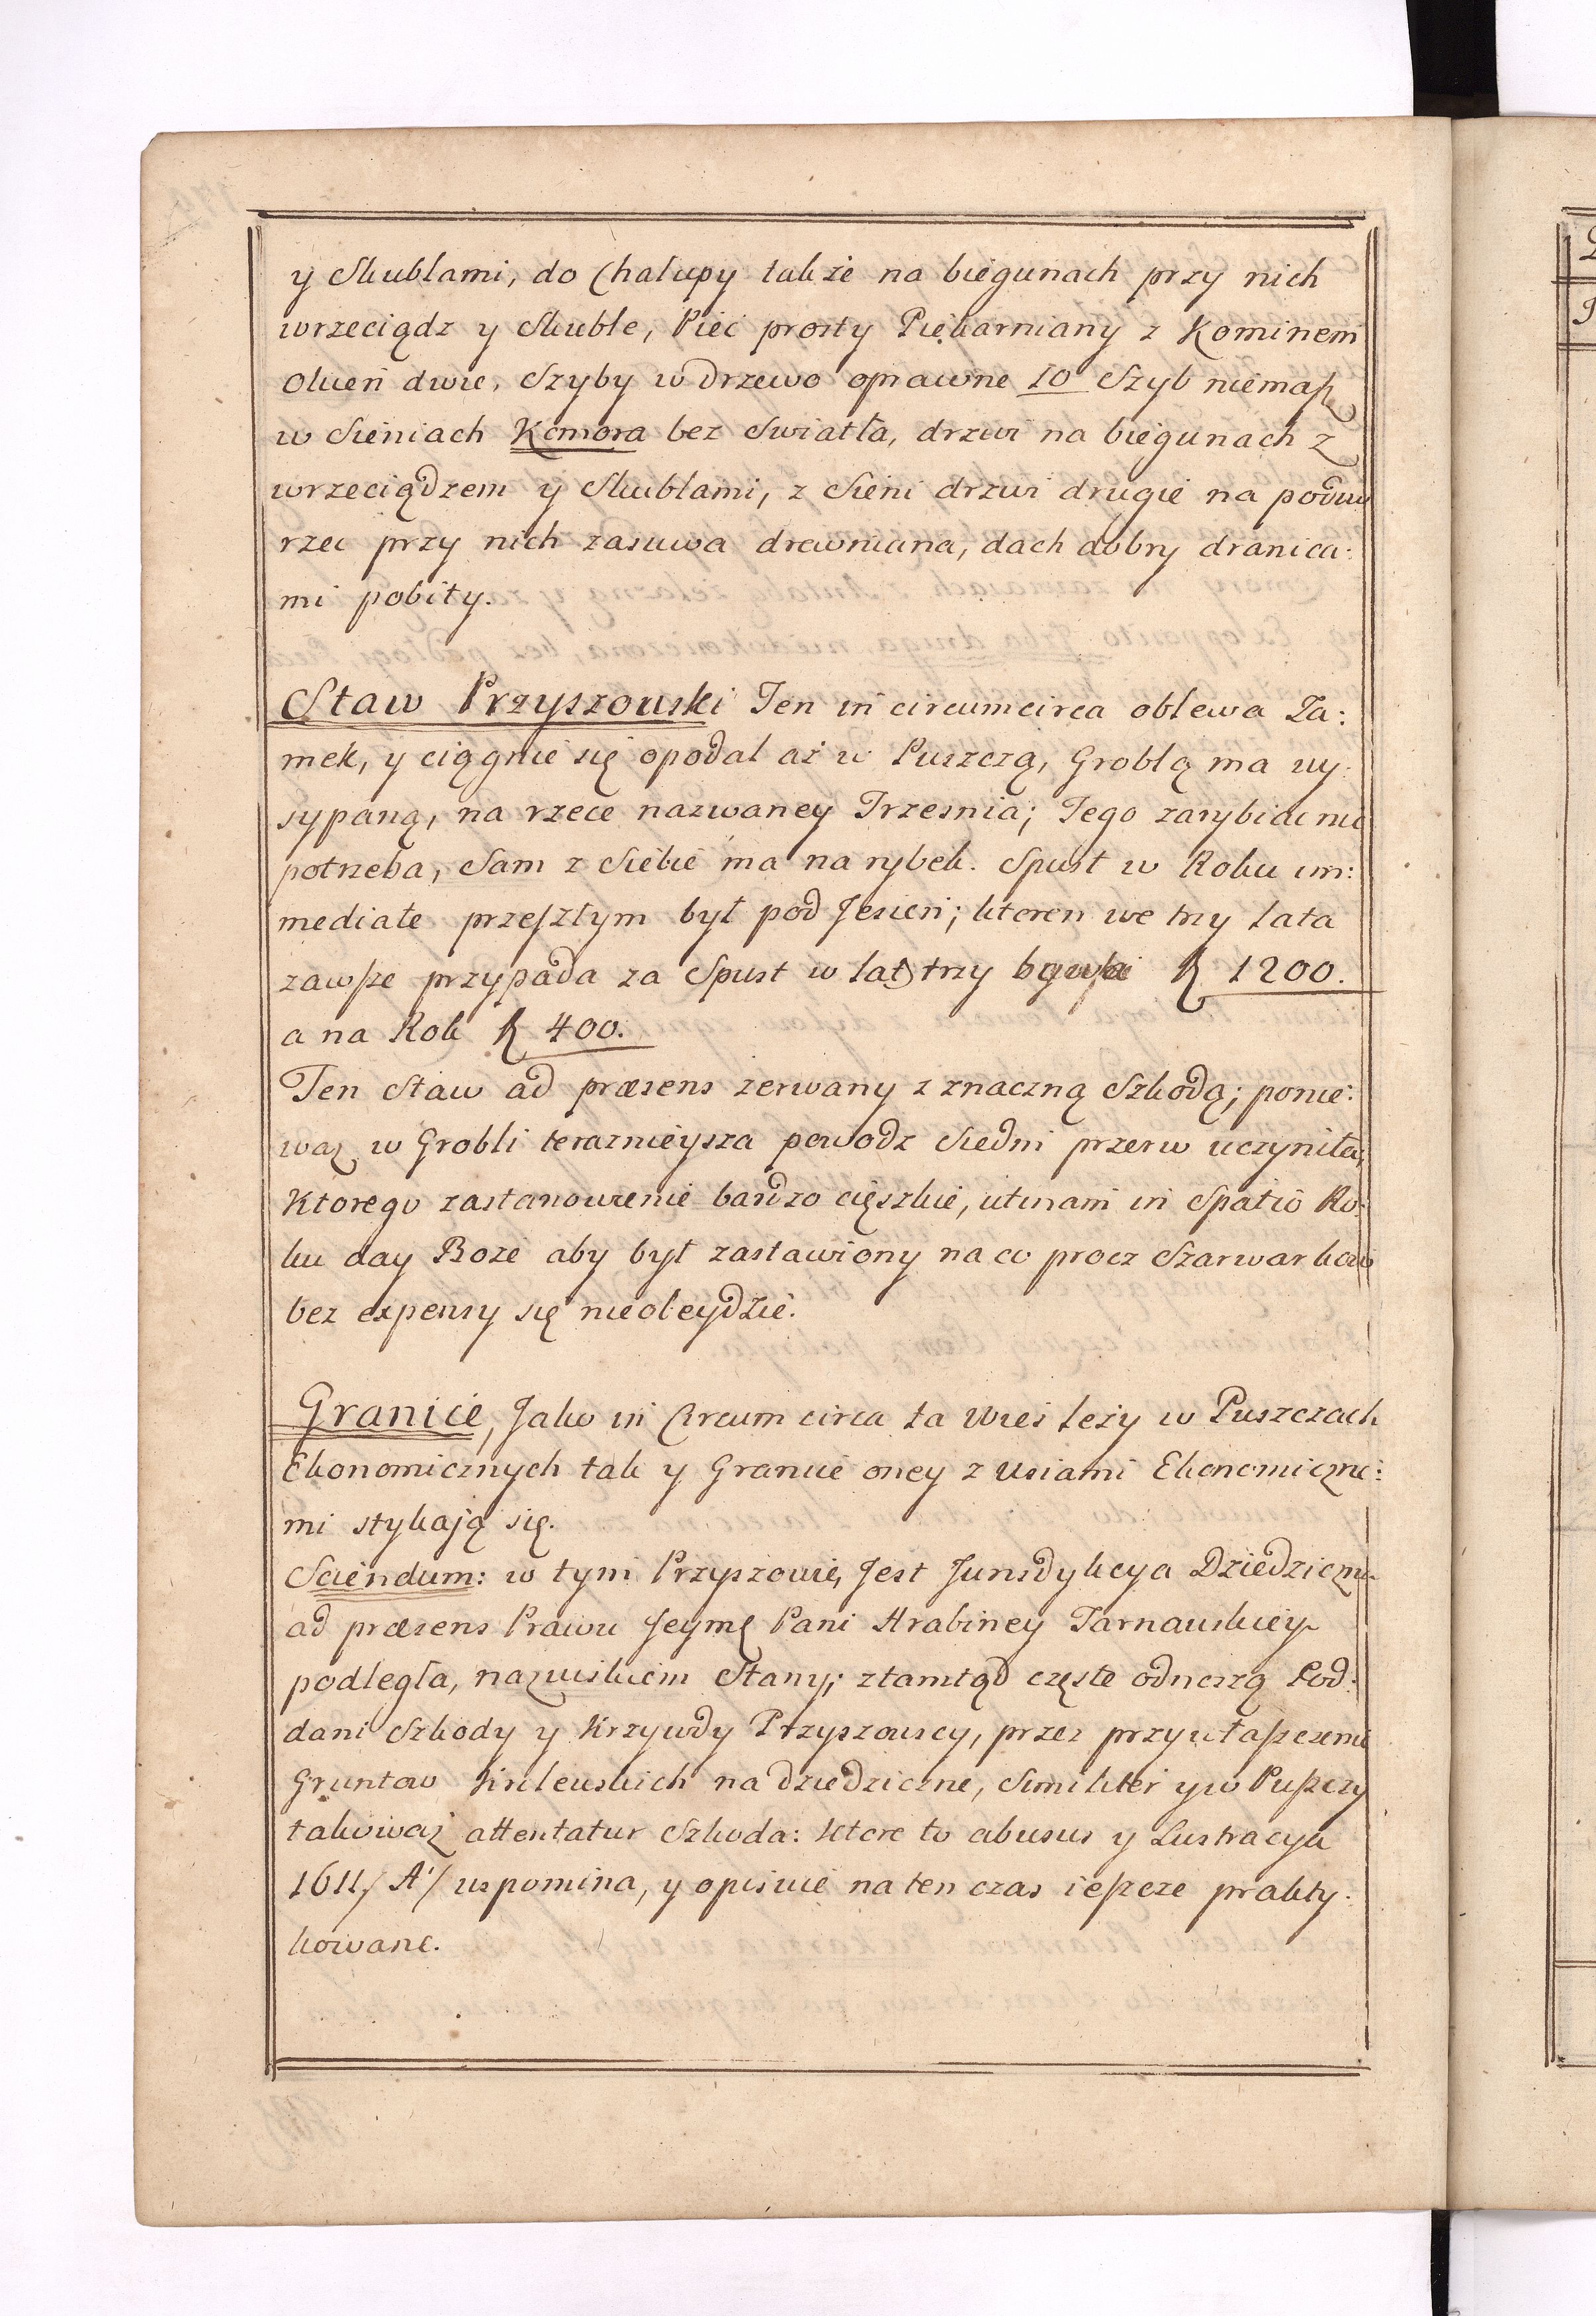 y Skublami, do Chalupy także na biegunach przy nich
wrzeciądz y Skuble, Piec prosty Piekarniany z Kominem
Okien dwie, Szyby w drzewo oprawne 10 Szyb niemasz
w Sieniach Komora bez Swiatła, drzwi na biegunach z
wrzeciądzem y Skublami, z Sieni drzwi drugie na podwu
rzec przy nich zasuwa drewniana, dach dobry dranica:
mi pobity.
Staw Przyszowski Ten in circumcirca oblewa Za:
mek, y ciągnie się opodal aż w Puszczą, Groblą ma wy:
sypaną, na rzece nazwaney Trzesnia; Tego zarybiac nie
potrzeba, Sam z Siebie ma narybek. Spust w Roku im:
mediate przeszłym był pod Jesień; ktoren we trzy lata
zawsze przypada za Spust w lat trzy 1200.
a na Rok 400.
Ten Staw ad præsens zerwany z znaczną Szkodą; ponie:
waz w Grobli teraznieysza powodz Siedm przerw uczyniła,
Ktorego zastanowienie bardzo cięszkie, utinam in Spatio Ro:
ku day Boze aby był zastawiony na co procz Szarwarkow
bez expensy się nieobeydzie.
Granice, Jako in Circum circa ta Wies leży w Puszczach
Ekonomicznych tak y Granice oney z Wsiami Ekonomiczne:
mi stykają się.
Sciendum: w tym Przyszowie, Jest Jurisdykcya Dziedziczna
ad præsens Prawu Jeymę Pani Hrabiney Tarnawskiey
podległa, nazwiskiem Stany; ztamtąd częste odnoszą Pod:
dani Szkody y Krzywdy Przyszowscy, przez przywłaszczenie
Gruntow Krolewskich na dziedziczne, Similiter y w Puszczy
takowaz attentatur Szkoda: ktore to abusus y Lustracya
1611 / A / wspomina, y opisuie na ten czas ieszcze prakty:
kowane.